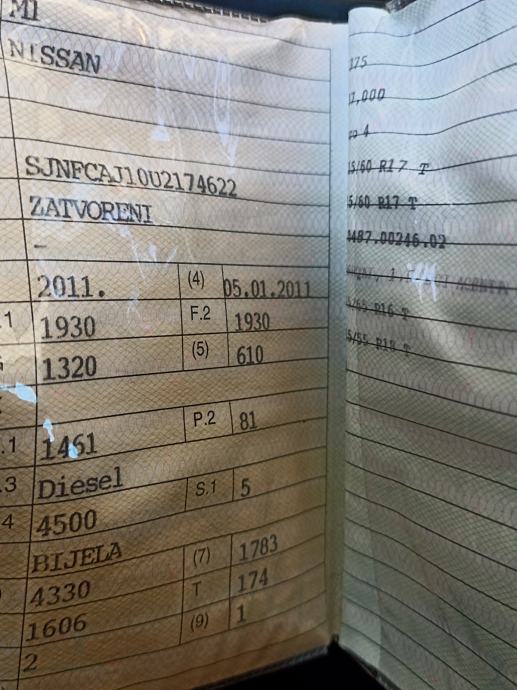 M1
NISSAN
SJNFCAJ10U2174622
ZATVORENI
-
2011. (4) 05.01.2011
.1 1930 F.2 1930
1320 (5) 610
.1 1461 P.2 81
.3 Diesel S.1 5
4 4500
BIJELA (7) 1783
4330 T 174
1606 (9) 1
2
175
1,000
4
5/60 R17 T
5/60 R17 T
487.00246.02
5/65 R16 T
5/55 R18 T